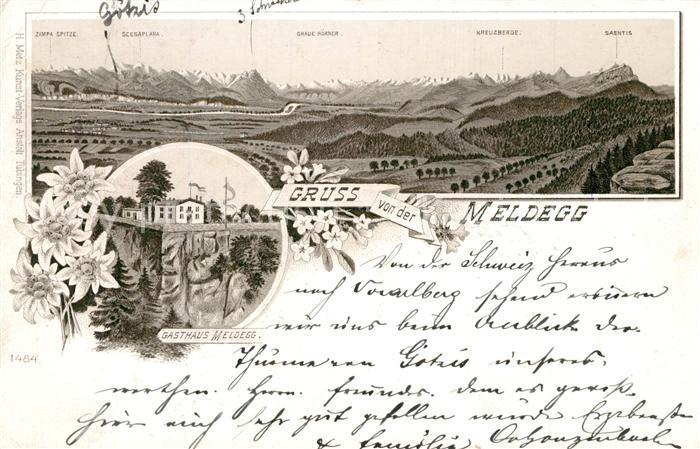 Götzis
3 Schwestern
ZIMPA SPITZE. SCESAPLANA. GRAUE HÖRNER. KREUZBERGE. SAENTIS
H. Metz Kunst-Verlags Anstalt Tübingen
GRUSS von der MELDEGG
GASTHAUS MELDEGG.
1484.
Von der Schweiz heraus
nach Vorarlberg sehend erinnern
wir uns beim Anblick der
Thürme von Götzis unseres
werthen Herrn Freunds. dem es gewiß
hier auch sehr gut gefallen würde
& Familie